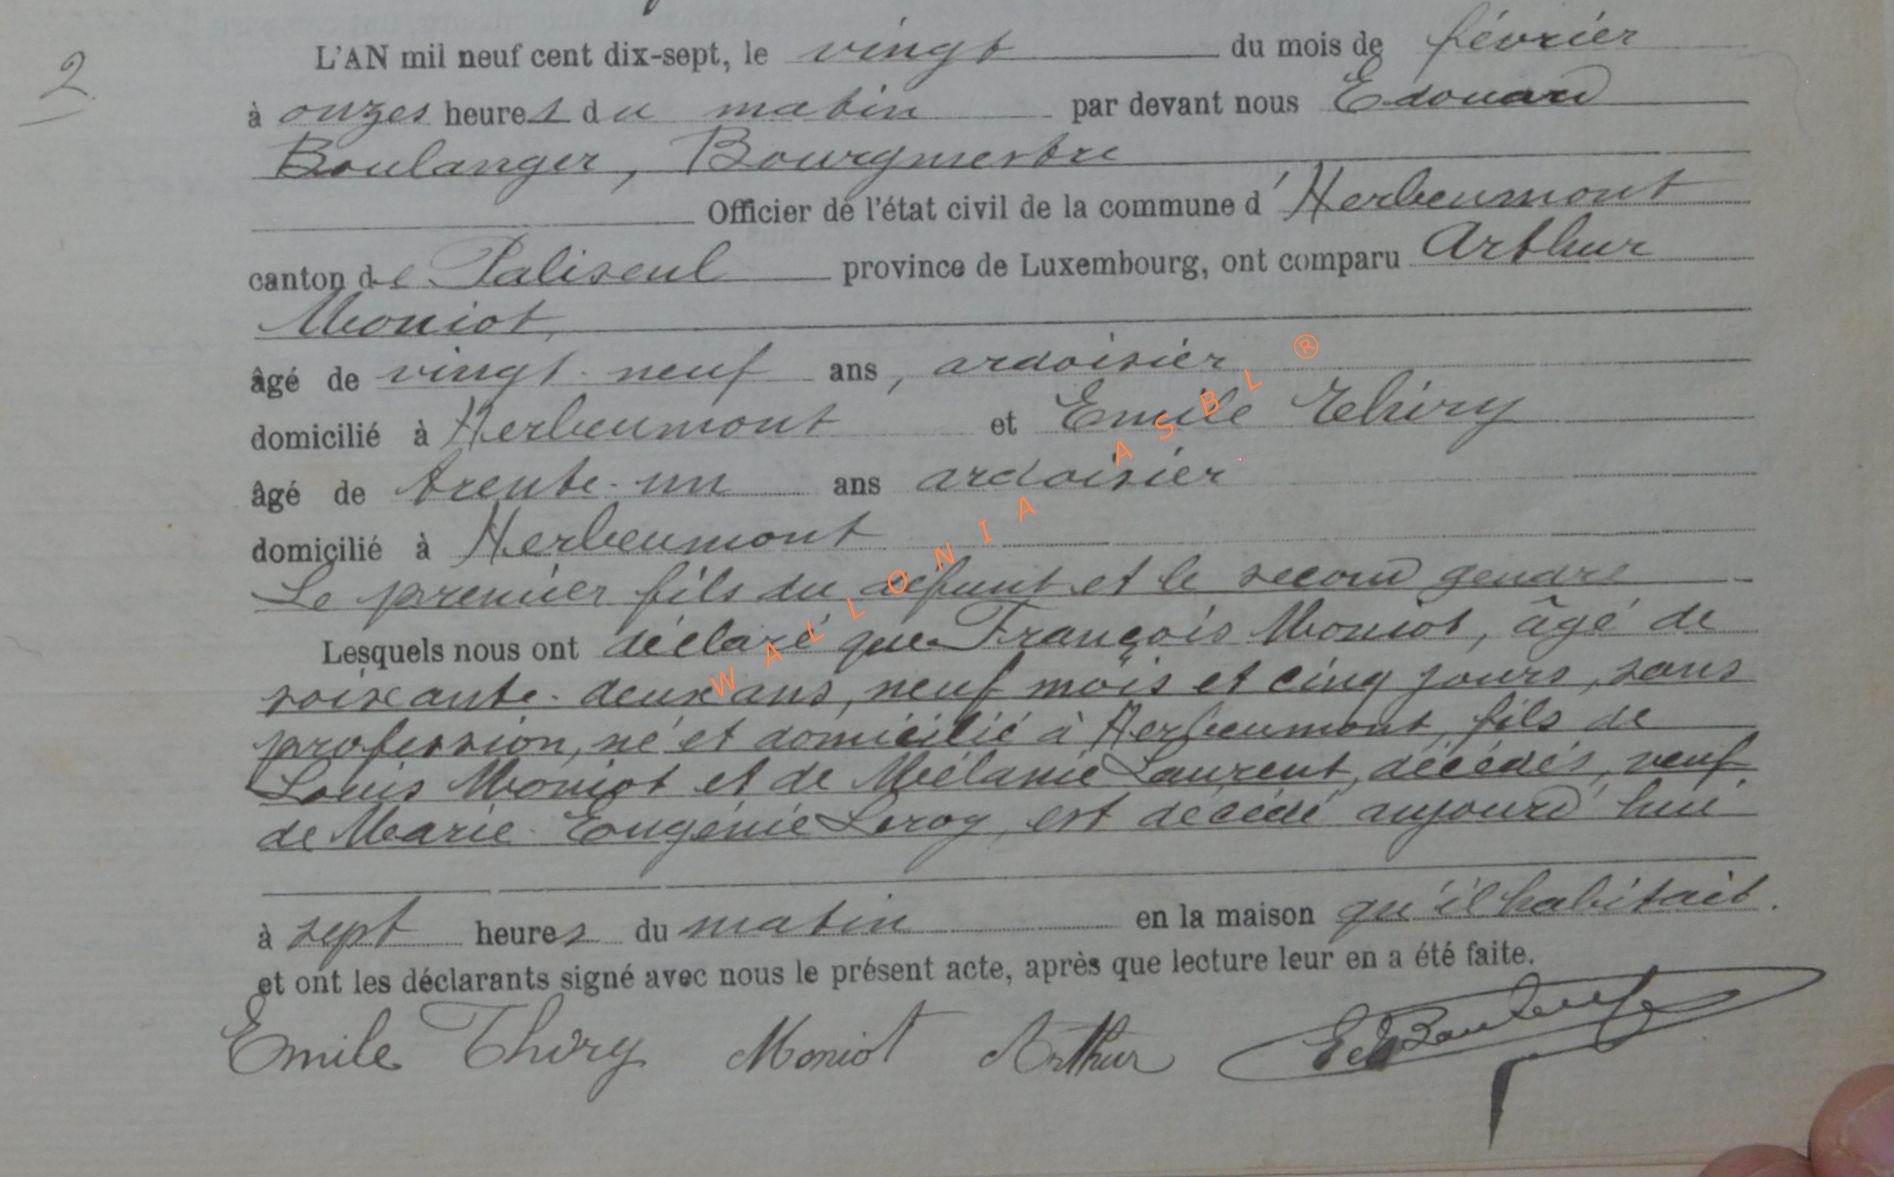 2
L'AN mil neuf cent dix-sept, le vingt du mois de février
à onzes heures du matin par devant nous Edouard
Boulanger, Bourgmestre
Officier de l'état civil de la commune d'Herbeumont
canton de Paliseul province de Luxembourg, ont comparu Arthur
Moniot,
âgé de vingt-neuf ans, ardoisier
domicilié à Herbeumont et Emile Thiry
âgé de trente-un ans ardoisier
domicilié à Herbeumont
Le premier fils du défunt et le second gendre
Lesquels nous ont déclaré que François Moniot, âgé de
soixante-deux ans, neuf mois et cinq jours, sans
profession, né et domicilié à Herbeumont, fils de
Louis Moniot et de Mélanie Laurent, décédés, veuf
de Marie-Eugénie Leroy, est décédé aujourd'hui
à sept heures du matin en la maison qu'il habitait.
et ont les déclarants signé avec nous le présent acte, après que lecture leur en a été faite.
Emile Thiry Moniot Arthur Ed Boulanger
WALLONIA ASBL ®